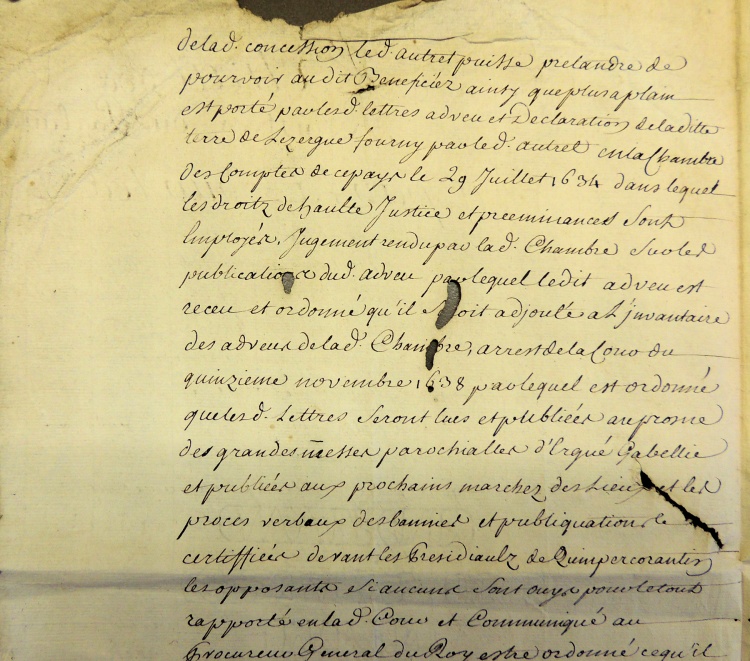 delad. concession led. autret puisse pretandre de
pourvoir audit Beneficier ainsy que plus a plain
est porté par lesd. lettres adveu et Declaration de laditte
terre de Lezergue fourny par led. autret en la Chambre
Des Comptes de ce pays le 29 Juillet 1634 dans lequel
les droitz de haulte Justice et preeminances sont
Employés. Jugement rendu par lad. Chambre sur les
publications dud. adveu par lequel ledit adveu est
receu et ordonné qu'il soit adjouté a L'jnvantaire
des adveus de lad. Chambre, arrest de la Cour du
quinzieme novembre 1638 par lequel est ordonné
que lesd. Lettres seront lues et publiées au prosne
des grandes messes parochialles d'Ergué Gabellic
et publiées aux prochains marchez des Lieux et les
proces verbaux des bannies et publiquations
certiffiées devant les Presidiaulz de Quimpercorantin
les opposants si aucuns sont ouys pour le tout
rapporté en lad. Cour et Communiqué au
Procureur General du Roy estre ordonné ce qu'il